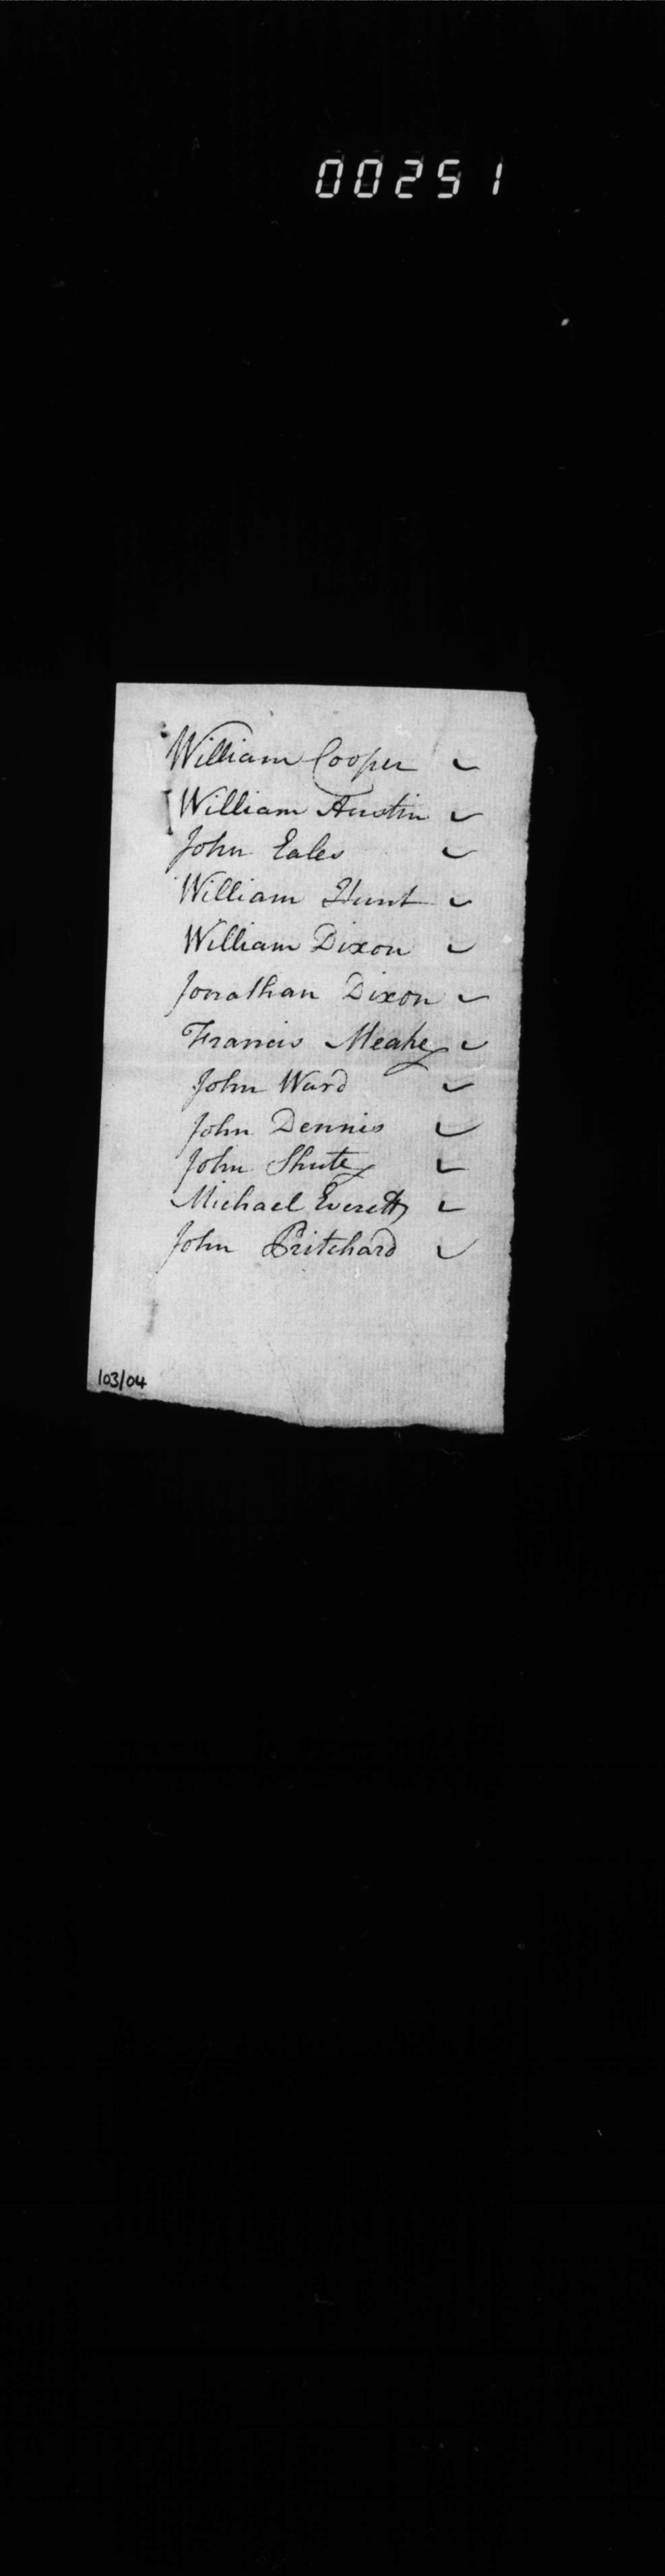 00251
William Cooper ✓
William Austin ✓
John Eales ✓
William Hunt ✓
William Dixon ✓
Jonathan Dixon ✓
Francis Meake ✓
John Ward ✓
John Dennis ✓
John Shute ✓
Michael Everett ✓
John Pritchard ✓
103/04